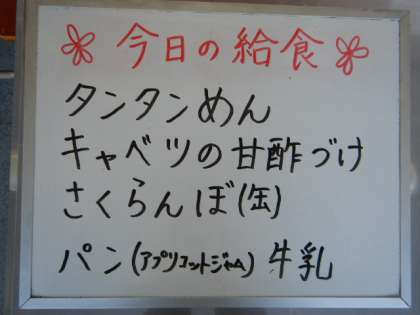 今日の給食
タンタンめん
キャベツの甘酢づけ
さくらんぼ(缶)
パン(アプリコットジャム) 牛乳